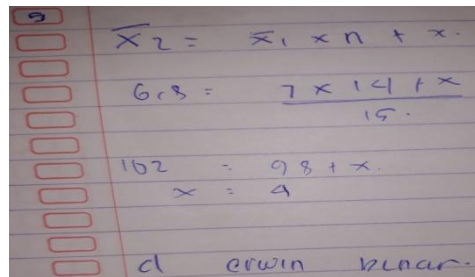 9
x̄2 = x̄1 x n + x.
6,8 = 7 x 14 + x
15.
102 = 98 + x.
x = 4
d erwin benar.